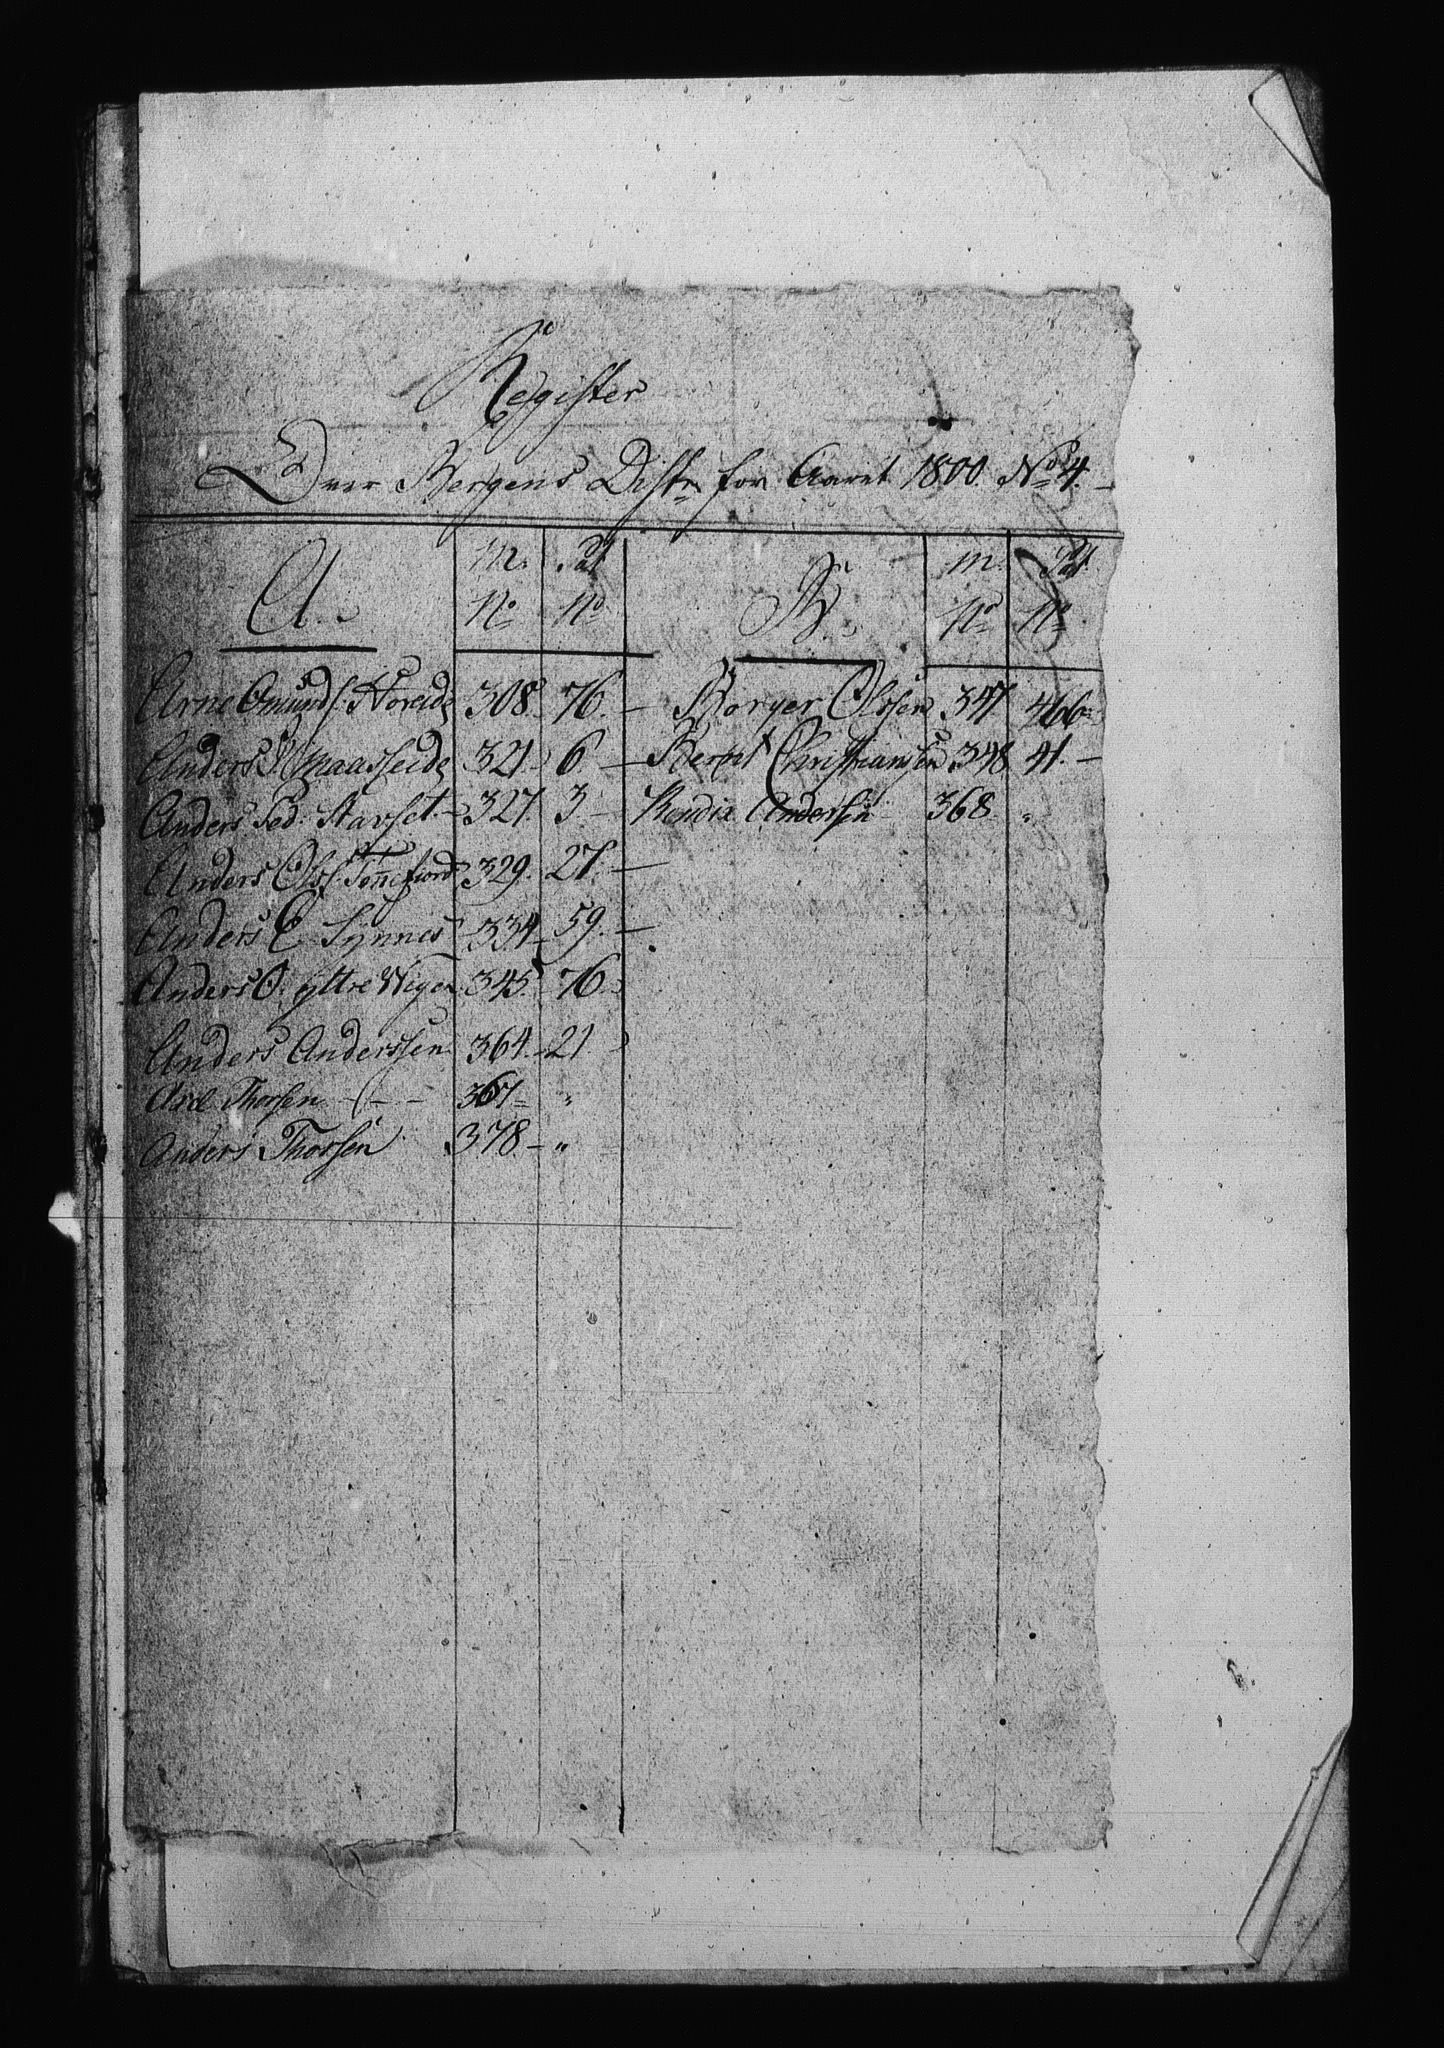 Register
Over Bergens Distr for Aaret 1800. No 4.
A. m. No Pat No B. m. No Pat No
Arne Omunds. Horeide 308. 76. — Børger Olssen 347 466
Anders J. Maasseide 321. 6. — Bernt Christiansen 348 41. —
Anders Ped. Stavset. — 327. 3 — Bendix Andersen 368. "
Anders Olss. Tennefiord 329. 27. —
Anders E. Synnes 334 59. —
Anders O. yttre Wigen 345. 76.
Anders Anderssen 364. 21.
Axel Thorsen — — — 367 "
Anders Thorsen 378 — "